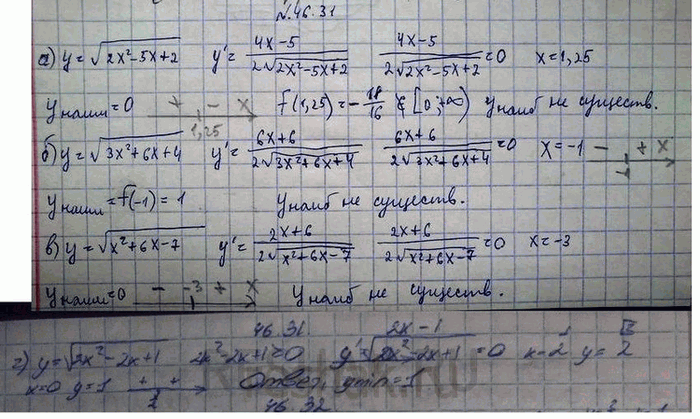 №46.31
а) y=√(2x²-5x+2)  y'= (4x-5)/(2√(2x²-5x+2))  (4x-5)/(2√(2x²-5x+2)) =0  x=1,25
yнаим=0  + - x  1,25  f(1,25)=-18/16 ∉ [0;+∞)  yнаиб не существ.
б) y=√(3x²+6x+4)  y'= (6x+6)/(2√(3x²+6x+4))  (6x+6)/(2√(3x²+6x+4)) =0  x=-1  - + x  -1
yнаим=f(-1)=1  yнаиб не существ.
в) y=√(x²+6x-7)  y'= (2x+6)/(2√(x²+6x-7))  (2x+6)/(2√(x²+6x-7)) =0  x=-3
yнаим=0  - -3 + x  yнаиб не существ.
46.31.
г) y=√(2x²-2x+1)  2x²-2x+1=0  y'= (2x-1)/√(2x²-2x+1) =0  x=1/2  y=√2/2
x=0 y=1  + +  1/2  Ответ: ymin=1
46.32